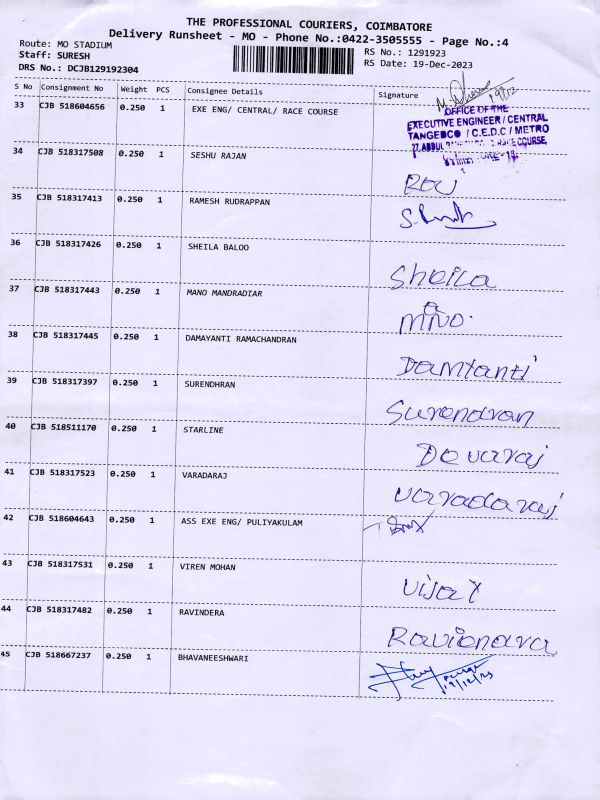 THE PROFESSIONAL COURIERS, COIMBATORE
Delivery Runsheet - MO - Phone No.:0422-3505555 - Page No.:4
Route: MO STADIUM
Staff: SURESH RS No.: 1291923
DRS No.: DCJB129192304 RS Date: 19-Dec-2023
S No Consignment No Weight PCS Consignee Details Signature
19/12
33 CJB 518604656 0.250 1 EXE ENG/ CENTRAL/ RACE COURSE
OFFICE OF THE
EXECUTIVE ENGINEER / CENTRAL
TANGEDCO / C.E.D.C / METRO
RACE COURSE,
34 CJB 518317508 0.250 1 SESHU RAJAN
35 CJB 518317413 0.250 1 RAMESH RUDRAPPAN
36 CJB 518317426 0.250 1 SHEILA BALOO
Sheila
37 CJB 518317443 0.250 1 MANO MANDRADIAR
38 CJB 518317445 0.250 1 DAMAYANTI RAMACHANDRAN
Damyanti
39 CJB 518317397 0.250 1 SURENDHRAN
Surendran
40 CJB 518511170 0.250 1 STARLINE
Devaraj
41 CJB 518317523 0.250 1 VARADARAJ
varadaraj
42 CJB 518604643 0.250 1 ASS EXE ENG/ PULIYAKULAM
43 CJB 518317531 0.250 1 VIREN MOHAN
Vijay
44 CJB 518317482 0.250 1 RAVINDERA
45 CJB 518667237 0.250 1 BHAVANEESHWARI
19/12/23